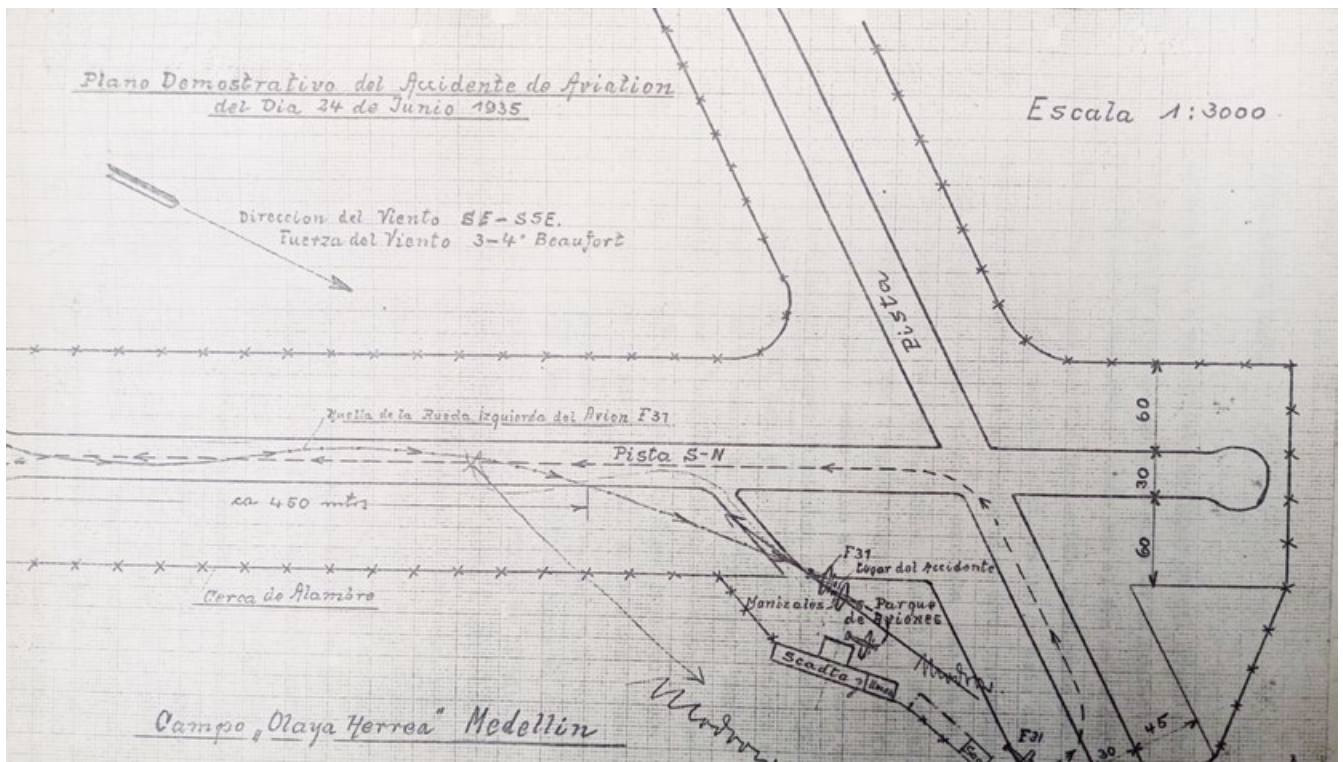 Plano Demostrativo del Accidente de Aviation
del Dia 24 de Junio 1935
Escala 1:3000
Direccion del Viento SE-SSE.
Fuerza del Viento 3-4° Beaufort
Pista
Huella de la Rueda Izquierda del Avion F31
60
Pista S-N
30
ca 450 mtrs
60
F31
Lugar del Accidente
Cerca de Alambre
Manizales
Parque
de Aviones
Scadta
Campo „Olaya Herrea" Medellin
F31
30
45